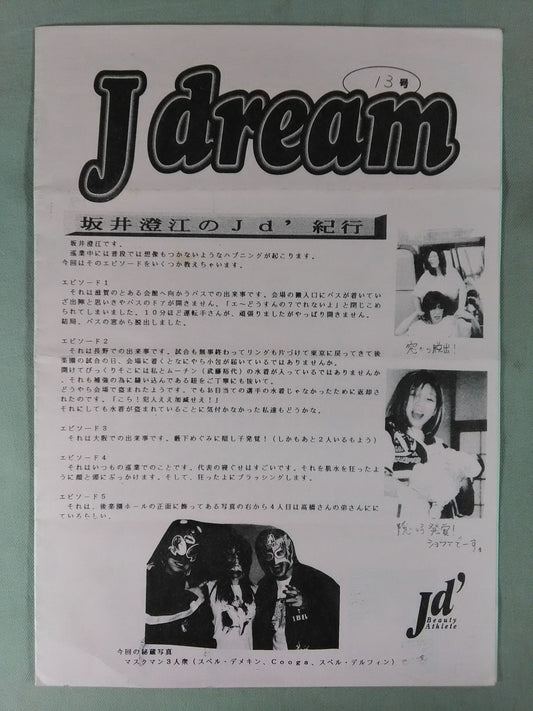 13号
J dream
坂井澄江のJd’紀行
坂井澄江です。
巡業中には普段では想像もつかないようなハプニングが起こります。
今回はそのエピソードをいくつか教えちゃいます。
エピソード1
それは滋賀のとある会館へ向かうバスでの出来事です。会場の搬入口にバスが着いてい
ざ出陣と思いきやバスのドアが開きません。「エーどうすんの?でれないよ」と閉じこめ
られてしまいました。10分ほど運転手さんが、頑張りましたがやっぱり開きません。
結局、バスの窓から脱出しました。
エピソード2
それは長野での出来事です。試合も無事終わってリングも片づけて東京に戻ってきて後
楽園の試合の日、会場に着くとなにやら小包が届いているではありませんか。
開けてびっくりそこには私とムーチン(武藤裕代)の水着が入っているではありませんか
。それも補強の為に縫い込んである紐をご丁寧にも抜いて。
どうやら会場で盗まれたようです。でもお目当ての選手の水着じゃなかったために返却さ
れたのです。「こら!犯人ええ加減せえ!」
それにしても水着が盗まれていることに気付かなかった私達もどうかな。
エピソード3
それは大阪での出来事です。藪下めぐみに隠し子発覚!(しかもあと2人いるもよう)
エピソード4
それはいつもの巡業でのことです。代表の寝ぐせはすごいです。それを肌水を狂ったよ
うに髪と頭にぶっかけます。そして、狂ったよにブラッシングします。
エピソード5
それは、後楽園ホールの正面に飾ってある写真の右から4人目は高橋さんの弟さんにに
ているらしい。
窓から脱出!
隠し子発覚!
ショウでーす。
Jd’
Beauty
Athlete
今回の秘蔵写真
マスクマン3人衆(スペル・デメキン、Cooga、スペル・デルフィン)